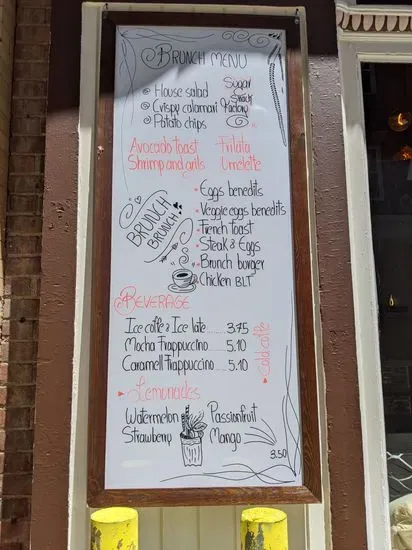 BRUNCH MENU
House salad
Crispy calamari
Patato chips
Sugar
Shack
Factory
Avocado toast Fritata
Shrimp and grils Umelette
BRUNCH
BRUNCH
Eggs benedits
Veggie eggs benedits
French Toast
Steak & Eggs
Brunch burger
Chicken BLT
BEVERAGE
Ice coffe & Ice late 3.75
Mocha Frappuccino 5.10
Caramell Frappuccino 5.10
Cold coffe
Lemonades
Watermelon Passionfruit
Strawberry Mango
3.50